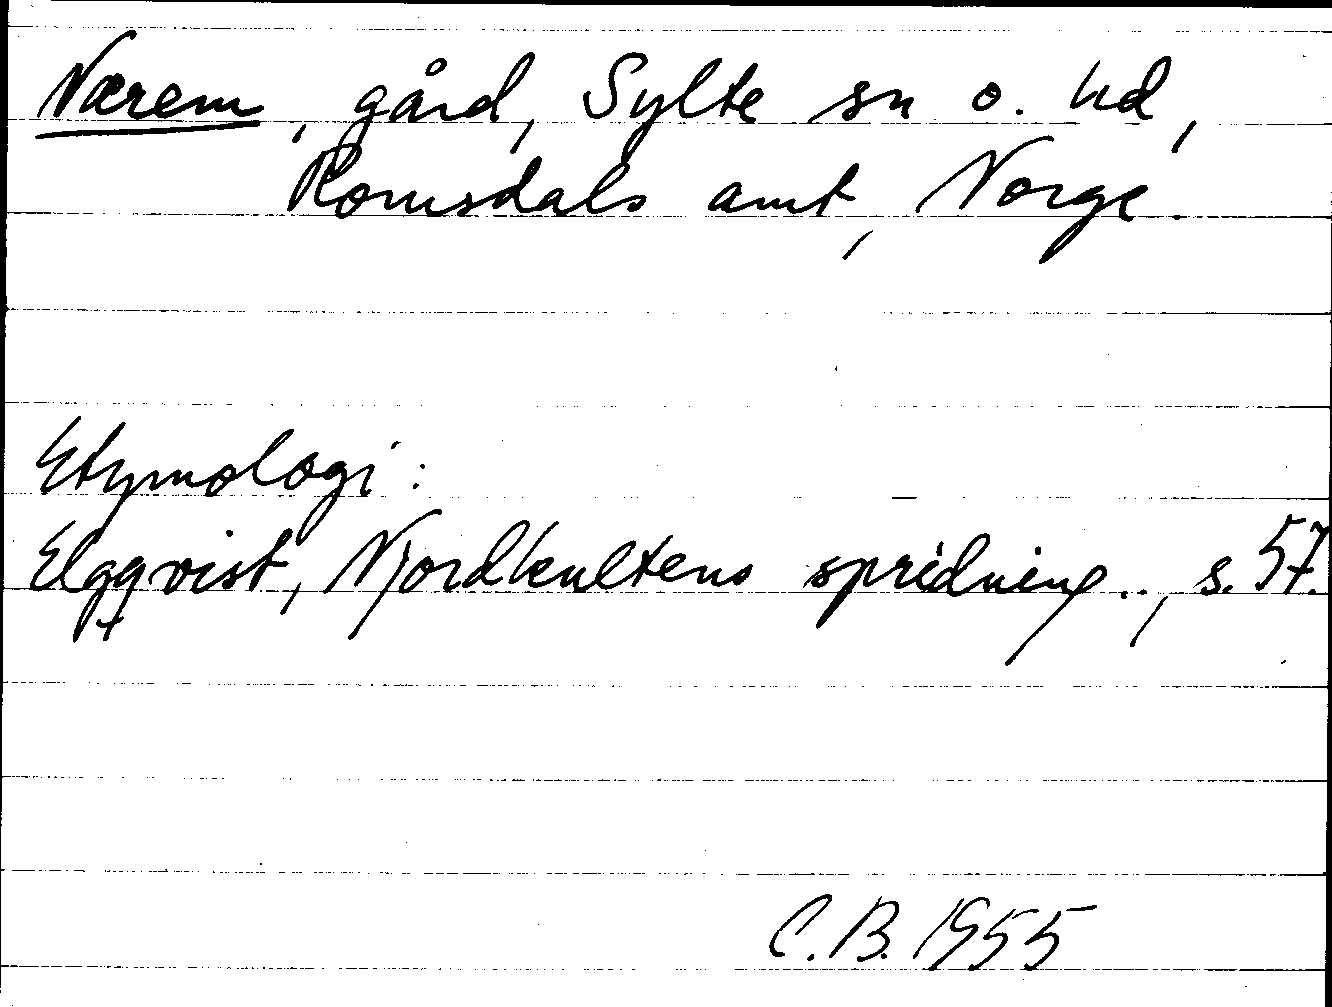 Nærem, gård, Sylte sn o. hd,
Romsdals amt, Norge.
Etymologi:
Elgqvist, Njordkultens spridning.., s. 57.
C.B. 1955